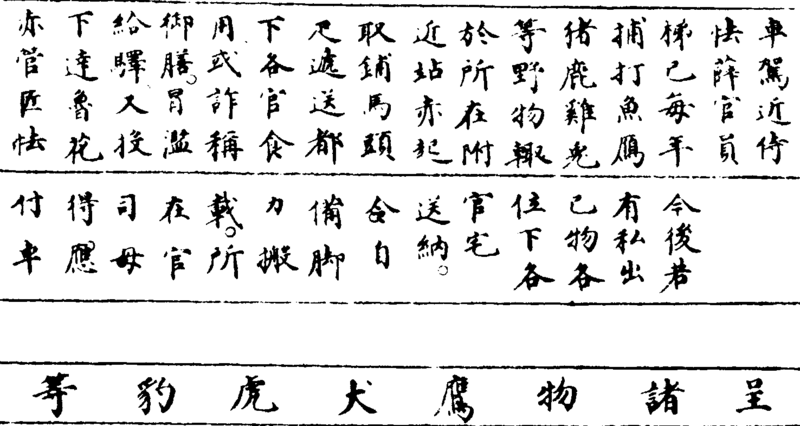 車駕近侍
怯薛官員
梯己每年
捕打魚鴈
猪鹿雞兎
等野物輙
於所在附
近站亦起
取鋪馬頭
疋遞送都
下各官食
用或詐稱
御膳。冐濫
給驛又投
下達魯花
亦管匠怯
今後若
有私出
己物各
位下各
官宅
送納。
合自
備脚
力搬
載。所
在官
司毋
得應
付車
呈諸物鷹犬虎豹等